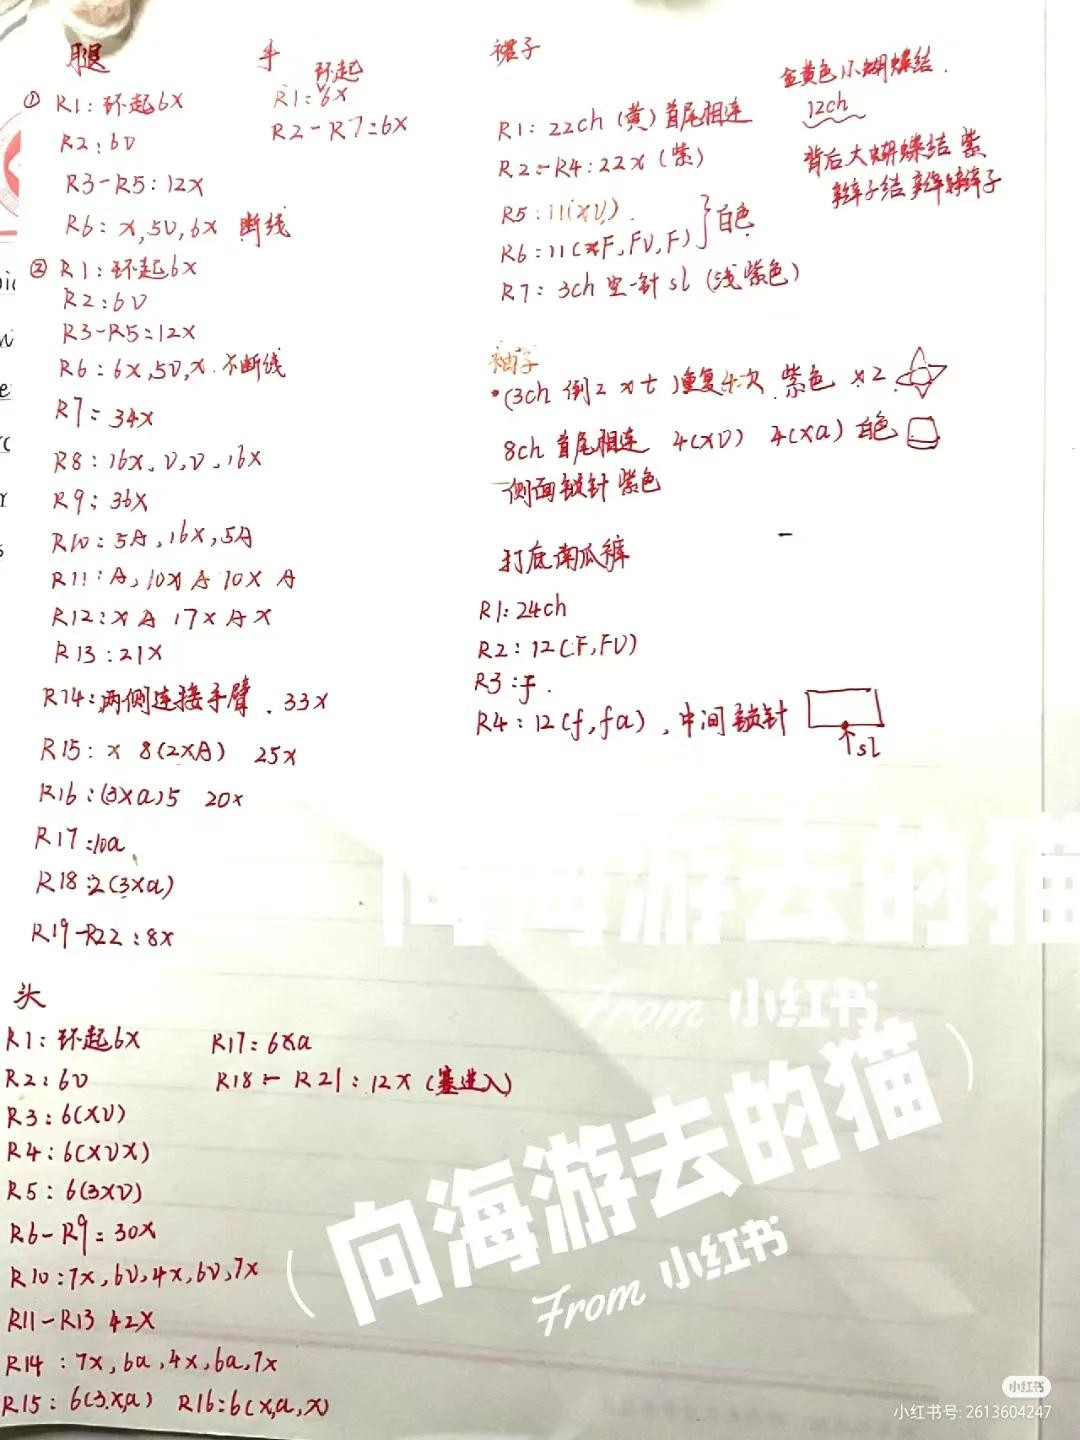 腿
① R1: 环起6X
R2: 6V
R3-R5: 12X
R6: X, 5V, 6X 断线
② R1: 环起6X
R2: 6V
R3-R5: 12X
R6: 6X, 5V, X. 不断线
R7: 34X
R8: 16X, V, V, 16X
R9: 36X
R10: 5A, 16X, 5A
R11: A, 10X A 10X A
R12: X A 17X A X
R13: 21X
R14: 两侧连接手臂. 33X
R15: X 8(2XA) 25X
R16: (3XA)5 20X
R17: 10A
R18: 2(3XA)
R19-R22: 8X
手
环起
R1: 6X
R2-R7: 6X
裙子
R1: 22ch (黄) 首尾相连
R2-R4: 22X (紫)
R5: 11(XV).
R6: 11(XF, FV, F) 白色
R7: 3ch 空一针 sl (浅紫色)
金黄色小蝴蝶结.
12ch
背后大蝴蝶结 紫
辫子结
袖子
·(3ch 倒2 X t) 重复4次. 紫色 X2
8ch 首尾相连 4(XV) 4(XA) 白色
侧面锁针 紫色
打底南瓜裤
R1: 24ch
R2: 12(F, FV)
R3: f.
R4: 12(f, fa), 中间锁针
sl
头
R1: 环起6X
R2: 6V
R3: 6(XV)
R4: 6(XVX)
R5: 6(3XV)
R6-R9: 30X
R10: 7X, 6V, 4X, 6V, 7X
R11-R13 42X
R14: 7X, 6a, 4X, 6a, 7X
R15: 6(3X,a) R16: 6(X,a,X)
R17: 6Xa
R18-R21: 12X (塞进入)
向海游去的猫
From 小红书
(向海游去的猫)
From 小红书
小红书
小红书号: 2613604247